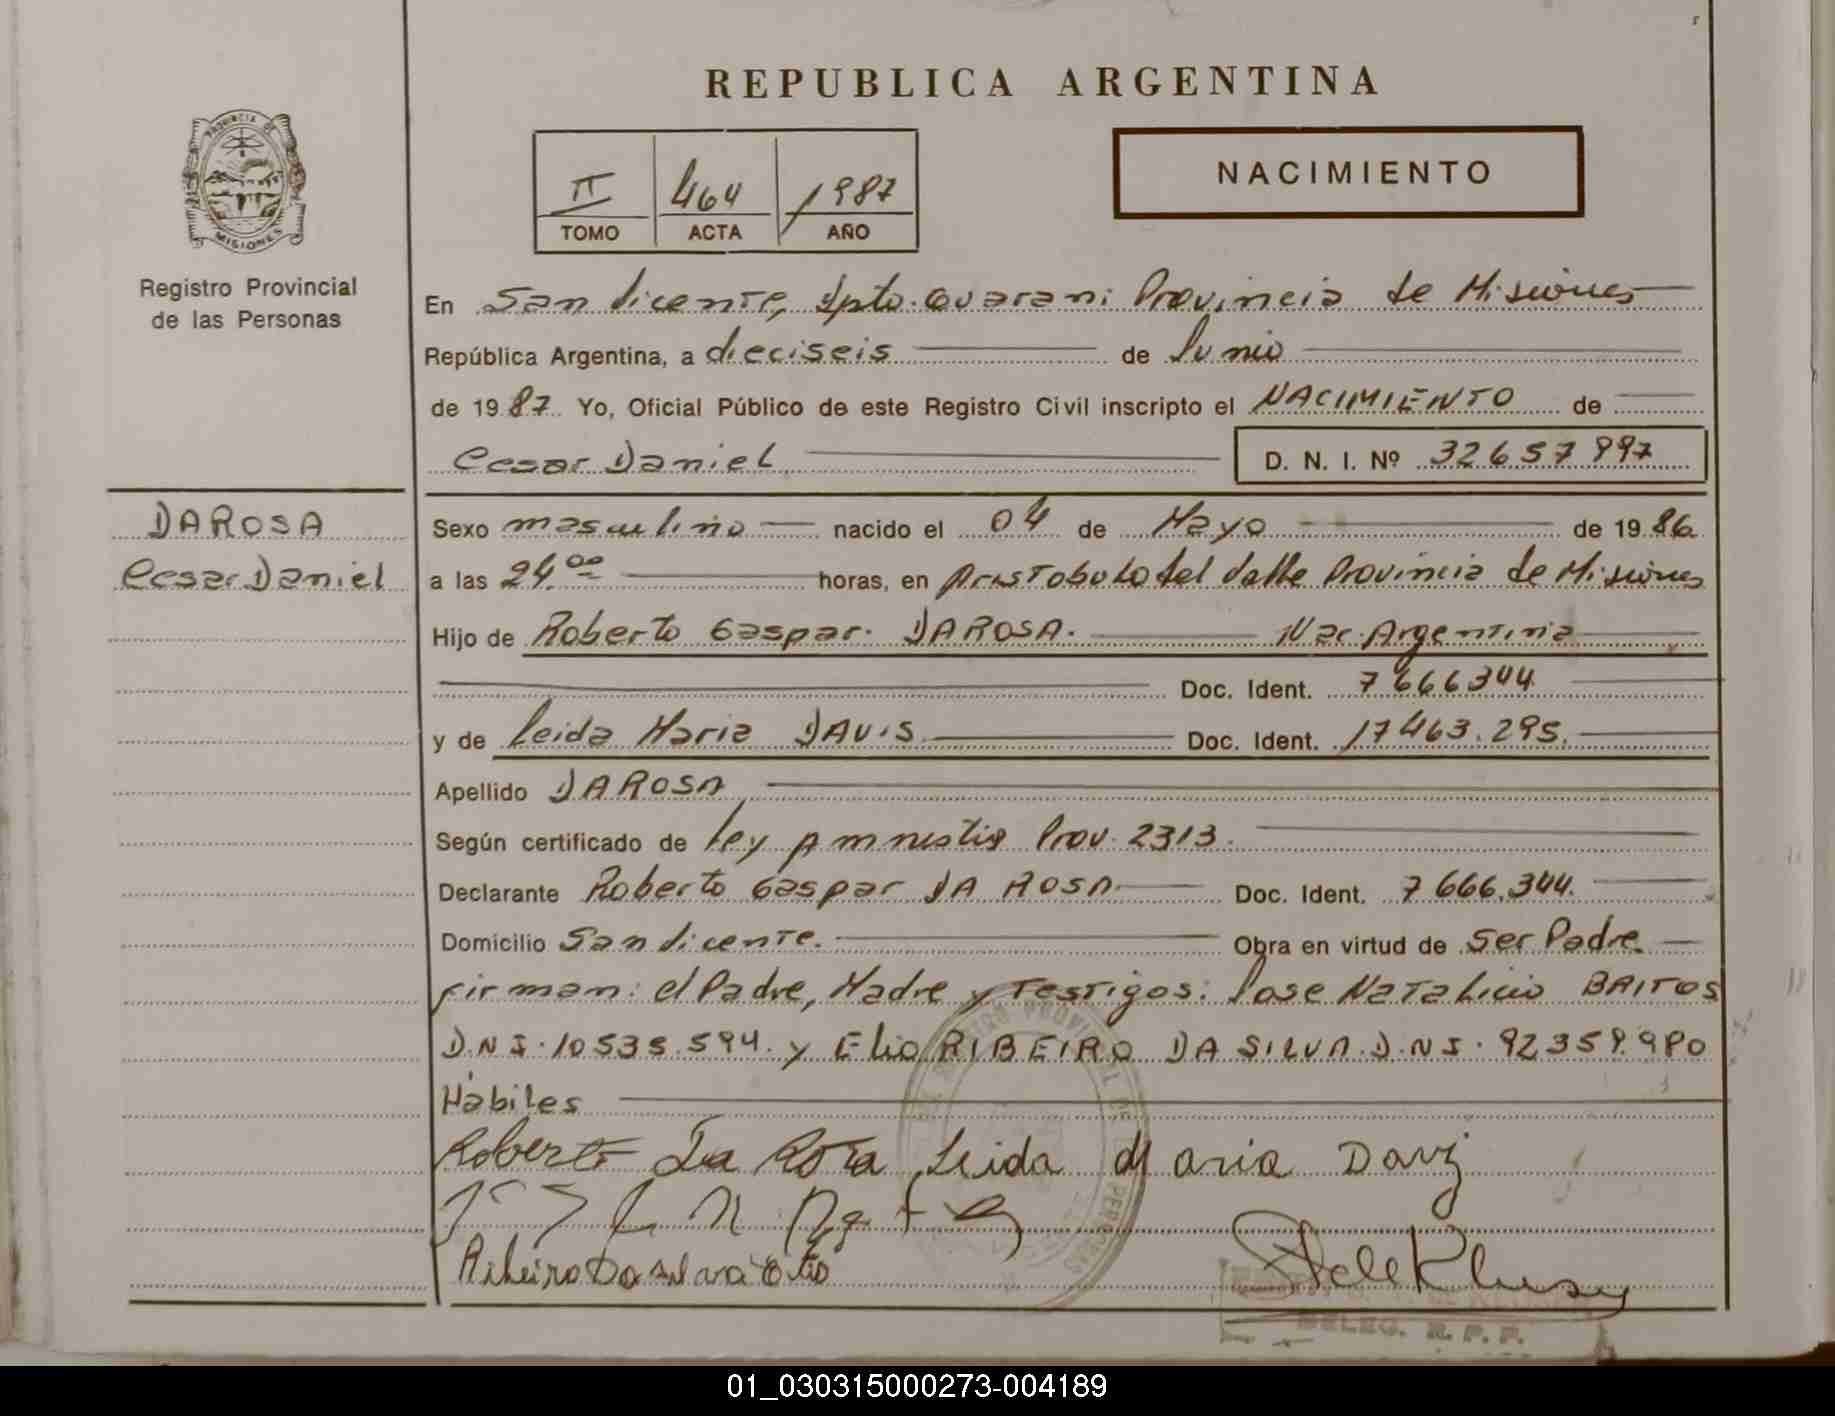 REPUBLICA ARGENTINA
NACIMIENTO
II 464 1987
TOMO ACTA AÑO
PROVINCIA DE
MISIONES
Registro Provincial
de las Personas
En San Vicente, Dpto. Guarani Provincia de Misiones
República Argentina, a dieciseis de Junio
de 1987. Yo, Oficial Público de este Registro Civil inscripto el NACIMIENTO de
Cesar Daniel D. N. I. Nº 32657997
DA ROSA
Cesar Daniel
Sexo masculino nacido el 04 de Mayo de 1986.
a las 24.00 horas, en Aristobulo del Valle Provincia de Misiones
Hijo de Roberto Gaspar. DA ROSA. Nac. Argentina
Doc. Ident. 7666344
y de Leida Maria DAVIS Doc. Ident. 17463.295.
Apellido DA ROSA
Según certificado de Ley Amnistia Prov. 2313.
Declarante Roberto Gaspar DA ROSA Doc. Ident. 7666.344.
Domicilio San Vicente. Obra en virtud de ser Padre.
firman: el Padre, Madre y Testigos: Jose Natalicio BRITOS
D.N.I. 10535.594. y Elio RIBEIRO DA SILVA. D.N.I. 92359.980
Hàbiles
Roberto Da Rosa Leida Maria Davis
Ribeiro Da Silva Elio
DELEG. R. P. P.
01_030315000273-004189